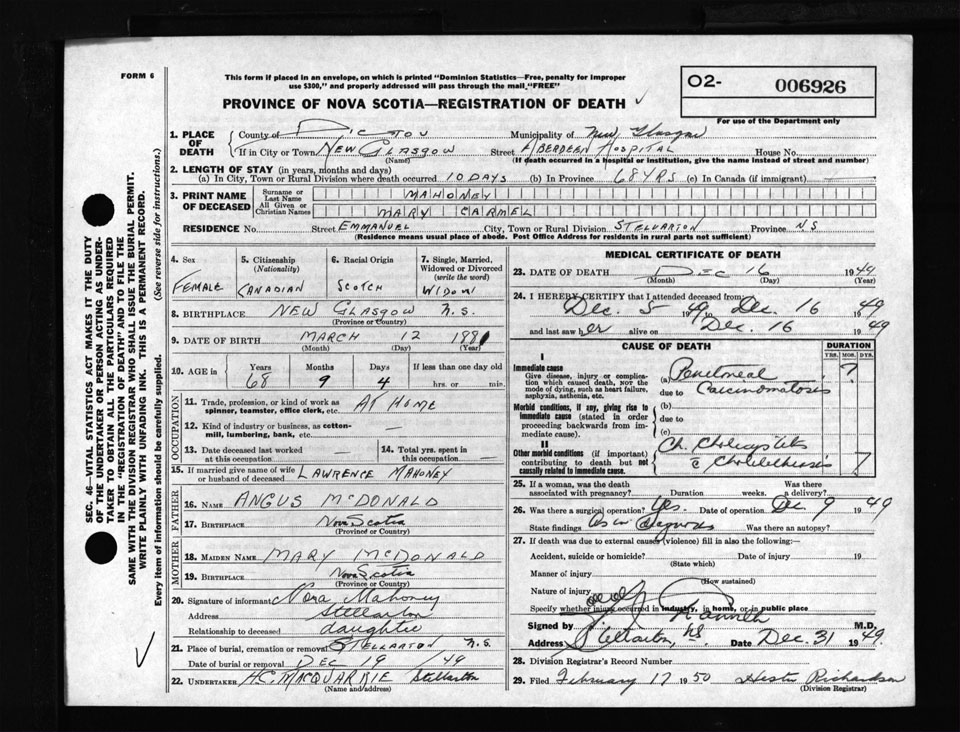 FORM 6
This form if placed in an envelope, on which is printed "Dominion Statistics—Free, penalty for improper
use $300," and properly addressed will pass through the mail "FREE"
PROVINCE OF NOVA SCOTIA—REGISTRATION OF DEATH
O2- 006926
For use of the Department only
1. PLACE OF DEATH County of PICTOU Municipality of New Glasgow
If in City or Town NEW GLASGOW (Name) Street ABERDEEN HOSPITAL House No.
(If death occurred in a hospital or institution, give the name instead of street and number)
2. LENGTH OF STAY (in years, months and days)
(a) In City, Town or Rural Division where death occurred 10 DAYS (b) In Province 68 YRS (c) In Canada (if immigrant)
3. PRINT NAME OF DECEASED Surname or Last Name MAHONEY
All Given or Christian Names MARY CARMEL
RESIDENCE No. Street EMMANUEL City, Town or Rural Division STELLARTON Province N S
(Residence means usual place of abode. Post Office Address for residents in rural parts not sufficient)
4. Sex FEMALE
5. Citizenship (Nationality) CANADIAN
6. Racial Origin SCOTCH
7. Single, Married, Widowed or Divorced (write the word) WIDOW
8. BIRTHPLACE NEW GLASGOW N.S.
(Province or Country)
9. DATE OF BIRTH MARCH 12 1881
(Month) (Day) (Year)
10. AGE in Years 68 Months 9 Days 4 If less than one day old hrs. or min.
OCCUPATION
11. Trade, profession, or kind of work as spinner, teamster, office clerk, etc. AT HOME
12. Kind of industry or business, as cotton-mill, lumbering, bank, etc.
13. Date deceased last worked at this occupation
14. Total yrs. spent in this occupation
15. If married give name of wife or husband of deceased LAWRENCE MAHONEY
FATHER
16. NAME ANGUS McDONALD
17. BIRTHPLACE Nova Scotia
(Province or Country)
MOTHER
18. MAIDEN NAME MARY McDONALD
19. BIRTHPLACE Nova Scotia
(Province or Country)
20. Signature of informant Nora Mahoney
Address Stellarton
Relationship to deceased daughter
21. Place of burial, cremation or removal STELLARTON N.S.
Date of burial or removal DEC 19 /49
22. UNDERTAKER H.C. MACQUARRIE Stellarton
(Name and/address)
MEDICAL CERTIFICATE OF DEATH
23. DATE OF DEATH DEC 16 1949
(Month) (Day) (Year)
24. I HEREBY CERTIFY that I attended deceased from
Dec. 5 1949 to Dec. 16 1949
and last saw her alive on Dec. 16 1949
CAUSE OF DEATH
DURATION
YRS. MOS. DYS.
I
Immediate cause
Give disease, injury or complication which caused death, NOT the mode of dying, such as heart failure, asphyxia, asthenia, etc.
(a) Peritoneal ?
due to Carcinomatosis
Morbid conditions, if any, giving rise to immediate cause (stated in order proceeding backwards from immediate cause).
(b)
due to
(c)
II
Other morbid conditions (if important) contributing to death but not causally related to immediate cause.
Ch. Cholecystitis
c Cholelithiasis ?
25. If a woman, was the death associated with pregnancy? Duration weeks. Was there a delivery?
26. Was there a surgical operation? Yes. Date of operation Dec. 9 1949
State findings as in diagnosis Was there an autopsy?
27. If death was due to external causes (violence) fill in also the following:—
Accident, suicide or homicide? Date of injury 19
(State which)
Manner of injury
(How sustained)
Nature of injury
Specify whether injury occurred in industry, in home, or in public place
Signed by M.D,
Address Stellarton, NS. Date Dec. 31 1949.
28. Division Registrar's Record Number
29. Filed February 17 1950 Hester Richardson
(Division Registrar)
SEC. 46—VITAL STATISTICS ACT MAKES IT THE DUTY
OF THE UNDERTAKER OR PERSON ACTING AS UNDER-
TAKER TO OBTAIN ALL THE PARTICULARS REQUIRED
IN THE "REGISTRATION OF DEATH" AND TO FILE THE
SAME WITH THE DIVISION REGISTRAR WHO SHALL ISSUE THE BURIAL PERMIT.
WRITE PLAINLY WITH UNFADING INK. THIS IS A PERMANENT RECORD.
Every item of information should be carefully supplied. (See reverse side for instructions.)